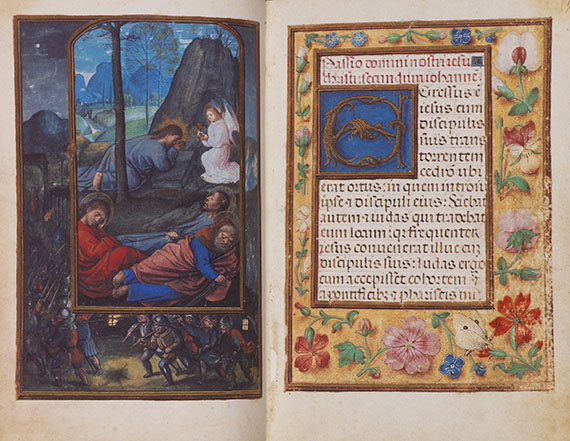 Passio domini nostri iesu
christi: secundum iohanne
Egressus e
iesus cum
discipulis
suis trans
torrentem
cedron ubi
erat ortus: in quem introi
ipse & discipuli eius: Sciebat
autem & iudas qui tradebat
eum locum: q frequenter
iesus convenerat illuc cu
discipulis suis: Iudas ergo
cum accepisset cohortem
a pontificib & phariseis mi